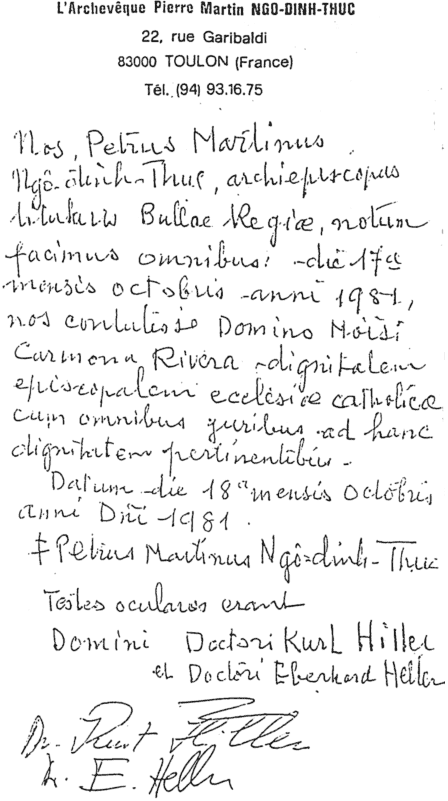 L'Archevêque Pierre Martin NGO-DINH-THUC
22, rue Garibaldi
83000 TOULON (France)
Tél. (94) 93.16.75
Nos, Petrus Martinus
Ngô-dinh-Thuc, archiepiscopus
titularis Bullae Regiæ, notum
facimus omnibus: die 17a
mensis octobris anni 1981,
nos contulisse Domino Moisi
Carmona Rivera dignitatem
episcopalem ecclesiæ catholicæ
cum omnibus juribus ad hanc
dignitatem pertinentibus -
Datum die 18a mensis Octobris
anni Dñi 1981.
‡ Petrus Martinus Ngô-dinh-Thuc
Testes oculares erant
Domini Doctori Kurt Hiller
et Doctori Eberhard Heller
Dr. Kurt Hiller
Dr. E. Heller